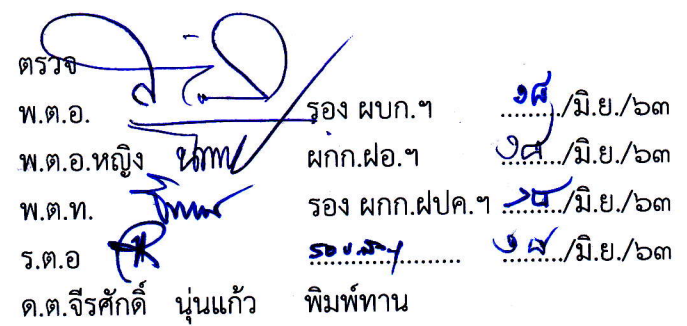 ตรวจ
พ.ต.อ. รอง ผบก.ฯ ๑๘/มิ.ย./๖๓
พ.ต.อ.หญิง ผกก.ฝอ.ฯ ๑๘/มิ.ย./๖๓
พ.ต.ท. รอง ผกก.ฝปค.ฯ ๑๘/มิ.ย./๖๓
ร.ต.อ ๑๘/มิ.ย./๖๓
ด.ต.จีรศักดิ์ นุ่นแก้ว พิมพ์ทาน